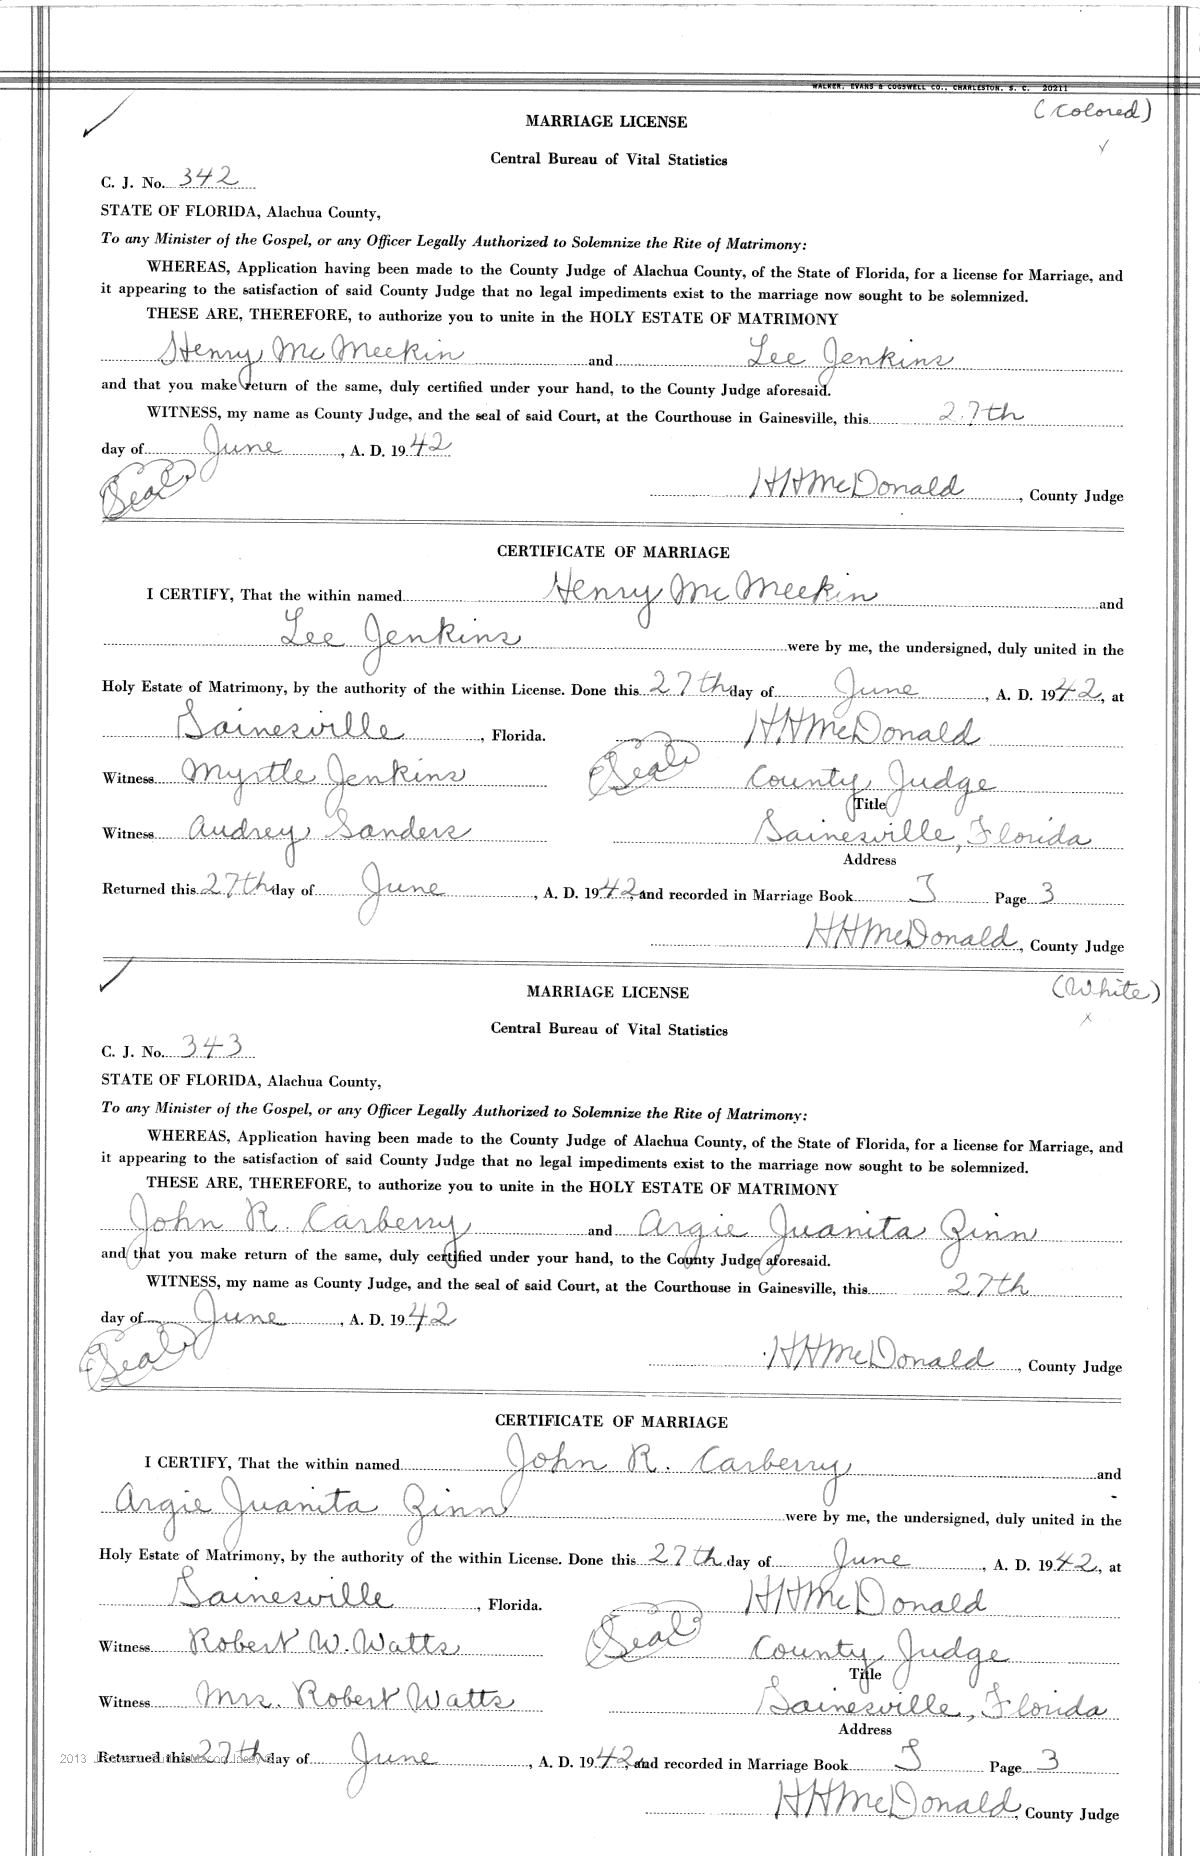 WALKER, EVANS & COGSWELL CO., CHARLESTON, S. C. 20211
(Colored)
MARRIAGE LICENSE
Central Bureau of Vital Statistics
C. J. No. 342
STATE OF FLORIDA, Alachua County,
To any Minister of the Gospel, or any Officer Legally Authorized to Solemnize the Rite of Matrimony:
WHEREAS, Application having been made to the County Judge of Alachua County, of the State of Florida, for a license for Marriage, and
it appearing to the satisfaction of said County Judge that no legal impediments exist to the marriage now sought to be solemnized.
THESE ARE, THEREFORE, to authorize you to unite in the HOLY ESTATE OF MATRIMONY
Henry McMeekin and Lee Jenkins
and that you make return of the same, duly certified under your hand, to the County Judge aforesaid.
WITNESS, my name as County Judge, and the seal of said Court, at the Courthouse in Gainesville, this 27th
day of June, A. D. 1942
(Seal) HHMcDonald, County Judge
CERTIFICATE OF MARRIAGE
I CERTIFY, That the within named Henry McMeekin and
Lee Jenkins were by me, the undersigned, duly united in the
Holy Estate of Matrimony, by the authority of the within License. Done this 27th day of June, A. D. 1942, at
Gainesville, Florida. HHMcDonald
Witness Myrtle Jenkins (Seal) County Judge
Title
Witness Audrey Sanders Gainesville, Florida
Address
Returned this 27th day of June, A. D. 1942, and recorded in Marriage Book J Page 3
HHMcDonald, County Judge
(White)
MARRIAGE LICENSE
Central Bureau of Vital Statistics
C. J. No. 343
STATE OF FLORIDA, Alachua County,
To any Minister of the Gospel, or any Officer Legally Authorized to Solemnize the Rite of Matrimony:
WHEREAS, Application having been made to the County Judge of Alachua County, of the State of Florida, for a license for Marriage, and
it appearing to the satisfaction of said County Judge that no legal impediments exist to the marriage now sought to be solemnized.
THESE ARE, THEREFORE, to authorize you to unite in the HOLY ESTATE OF MATRIMONY
John R. Carberry and Argie Juanita Zinn
and that you make return of the same, duly certified under your hand, to the County Judge aforesaid.
WITNESS, my name as County Judge, and the seal of said Court, at the Courthouse in Gainesville, this 27th
day of June, A. D. 1942
(Seal) HHMcDonald, County Judge
CERTIFICATE OF MARRIAGE
I CERTIFY, That the within named John R. Carberry and
Argie Juanita Zinn were by me, the undersigned, duly united in the
Holy Estate of Matrimony, by the authority of the within License. Done this 27th day of June, A. D. 1942, at
Gainesville, Florida. HHMcDonald
Witness Robert W. Watts (Seal) County Judge
Title
Witness Mrs. Robert Watts Gainesville, Florida
Address
2013
Returned this 27th day of June, A. D. 1942, and recorded in Marriage Book J Page 3
HHMcDonald, County Judge